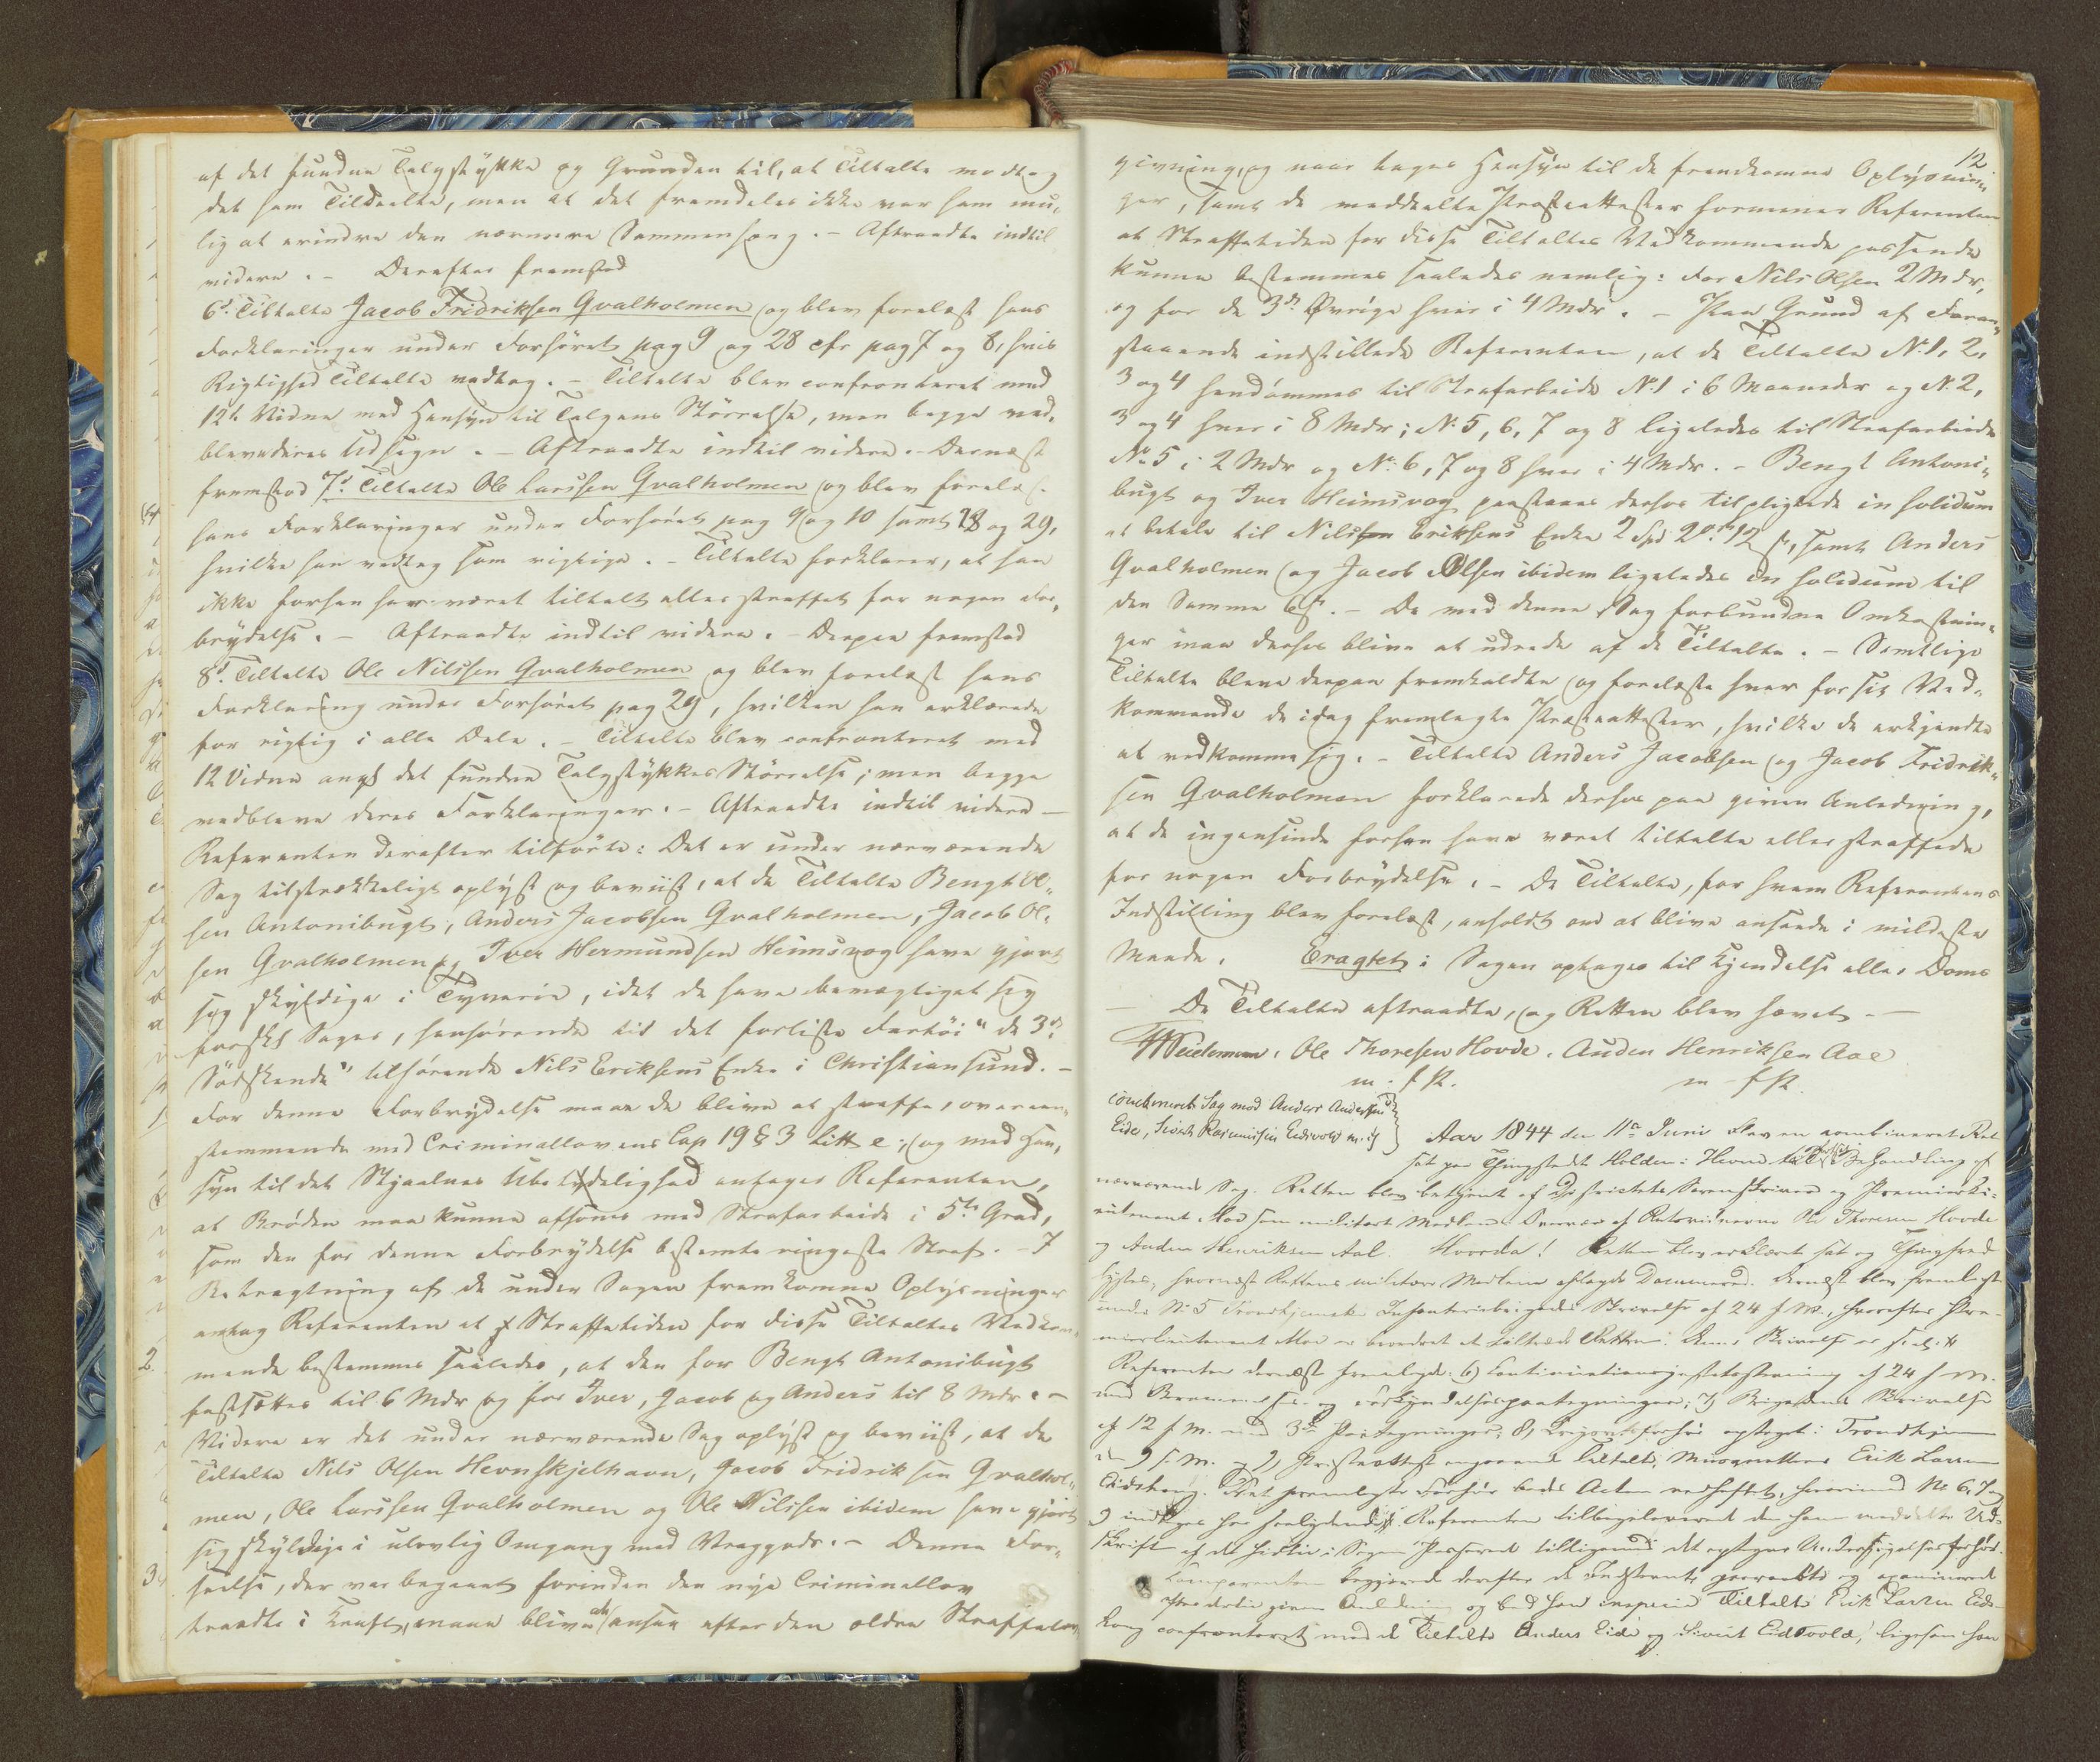 af det fundne Talgstykke og Grunden til, at Tiltalte modtog
det som Tildeelte, men at det fremdeles ikke var ham mu-
lig at erindre den nærmere Sammenhæng. – Aftraadte indtil
videre. – Derefter fremstod
6t. Tiltalte Jacob Fridriksen Qvalholmen og blev forelæst hans
Forklaringer under Forhøret pag 9 og 28 cfr pag 7 og 8, hvis
Rigtighed Tiltalte vedtog. – Tiltalte blev confronteret med
12te Vidne med Hensyn til Talgens Störrelse, men begge ved-
bleve deres Udsagn. – Aftraadte indtil videre. – Dernæst
fremstod 7d. Tiltalte Ole Larssen Qvalholmen og blev forelæst
hans Forklaringer under Forhöret pag 9 og 10 samt 28 og 29,
hvilke han vedtog som rigtige. – Tiltalte forklarer, at han
ikke forhen har været tiltalt eller straffet for nogen For-
brydelse. – Aftraadte indtil videre. – Derpaa fremstod
8d. Tiltalte Ole Nilssen Qvalholmen og blev forelæst hans
Forklaring under Forhöret pag 29, hvilken han erklærede
for rigtig i alle Dele. – Tiltalte blev confronteret med
12 Vidne angd det fundne Talgstykkes Störrelse; men begge
vedbleve deres Forklaringer. – Aftraadte indtil videre –
Referenten derefter tilförte: Det er under nærværende
Sag tilstrækkeligt oplyst og beviist, at de Tiltalte Bengt Ol-
sen Antonibugt, Anders Jacobsen Qvalholmen, Jacob Ol-
sen Qvalholmen og Iver Hermundsen Heimsvog have gjort
sig skyldige i Tyverie, idet de have bemægtiget sig
Sager, henhörende til det forliste Fartöi "de 3de
Södskende" tilhörende Nils Eriksens Enke i Christiansund. –
For denne Forbrydelse maae de blive at straffe, overeen-
stemmende med Criminallovens Cap 19 § 3 Litt e; og med Hen-
syn til det Stjaalnes Ubetydelighed antages Referenten,
at Bröden maa kunne afsones med Strafarbeide i 5te Grad,
som den for denne Forbrydelse bestemte ringeste Straf. – I
Betragtning af de under Sagen fremkomne Oplysninger
antog Referenten at Straffetiden for disse Tiltaltes Vedkom-
mende bestemmes saaledes, at den for Bengt Antonibugt
fastsættes til 6 Mdr og for Iver, Jacob og Anders til 8 Mdr. –
Videre er det under nærværende Sag oplyst og beviist, at de
Tiltalte Nils Olsen Hevnskjelhavn, Jacob Fridriksen Qvalhol-
men, Ole Larssen Qvalholmen og Ole Nilssen ibidem have gjort
sig skyldige i ulovlig Omgang med Vraggods. – Denne For-
seelse, der var begaaet forinden den nye Criminallov
traadte i Kraft, maae blive at ansee efter den ældre Straffelov-
12
givning, og naar tages Hensyn til de fremkomne Oplysnin-
ger, samt de meddeelte Præsteattester formener Referenten
at Straffetiden for disse Tiltaltes Vedkommende passende
kunne bestemmes saaledes nemlig: for Nils Olsen 2 Mdr,
og for de 3de Øvrige hver i 4 Mdr. – Paa Grund af Foran-
staaende indstillede Referenten, at de Tiltalte No 1, 2,
3 og 4 hendömmes til Strafarbeide No 1 i 6 Maaneder og No 2,
3 og 4 hver i 8 Mdr; No 5, 6, 7 og 8 ligeledes til Strafarbeide
No 5 i 2 Mdr og No 6, 7 og 8 hver i 4 Mdr. – Bengt Antoni-
bugt og Iver Heimsvog paastaaes derhos tilpligtede in solidum
at betale til Nils Eriksens Enke 2 Spd 2 ort 12 s, samt Anders
Qvalholmen og Jacob Olsen ibidem ligeledes in solidum til
den Samme 6 s. – De med denne Sag forbundne Omkostnin-
ger maa derhos blive at udrede af de Tiltalte. – Samtlige
Tiltalte bleve derpaa fremkaldte og forelæste hver for sit Ved-
kommende de idag fremlagte Præsteattester, hvilke de erkjendte
at vedkomme sig. – Tiltalte Anders Jacobsen og Jacob Fridrik-
sen Qvalholmen forklarede derhos paa given Anledning,
at de ingensinde forhen have været tiltalte eller straffede
for nogen Forbrydelse. – De Tiltalte, for hvem Referentens
Indstilling blev forelæst, anholdt om at blive ansete i mildeste
Maade. Eragtet: Sagen optages til Kjendelse eller Doms
– De Tiltalte aftraadte, og Retten blev hævet. –
Weidemann. Ole Thoresen Hovde. Auden Henriksen Aae
m. f. P. m. f. P.
Combineret Sag mod Anders Andersen
Eide, Sivert Rasmussen Eidsvold m. fl
Aar 1844 den 11te Juni blev en combineret Ret
sat paa Thingstedet Holden i Hevne til Behandling af
nærværende Sag. Retten blev betjent af Districtets Sorenskriver og Premierli-
eutenant Moe som militært Medlem i Overvær af Retsvidnerne Ole Thoresen Hovde
og Auden Henriksen Aal. Hvorda! Retten blev erklæret sat og Thingfred
lystes, hvornæst Rettens militære Medlem aflagde Dommereed. Dernæst blev fremlagt
under No 5 Trondhjemske Infanteribrigades Skrivelse af 24 f. M., hvorefter Pre-
mierlieutenant Moe er beordret at tiltræde Retten. Denne Skrivelse er
Referenten dernæst fremlagde: 6) Continuations af 24 f. M.
med Berammelses- og Forkyndelsespaategninger; 7) Brigadens Skrivelse
af 12 f. M. med 3de Paategninger; 8) forhör optaget i Trondhjem
9 f. M. og 9) Præsteattest angaaende Tiltalte, Musqueteer Erik Larsen
Eidshaug. Det fremlagte Forhör bedes Acten vedheftet, hvorimod No 6, 7 og
9 indtages her saalydende. Referenten tilbageleverede den ham meddeelte Ud-
skrift af det hidtil i Sagen Passerede tilligemed det optagne Undersögelsesforhör.
Comparenten begjærede derefter de Indstevnte paaraabte og examinerede
given Anledning og bad Tiltalte Erik Larsen Eids-
haug confronteret med de Tiltalte Anders Eide og Sivert Eidsvold, ligesom han